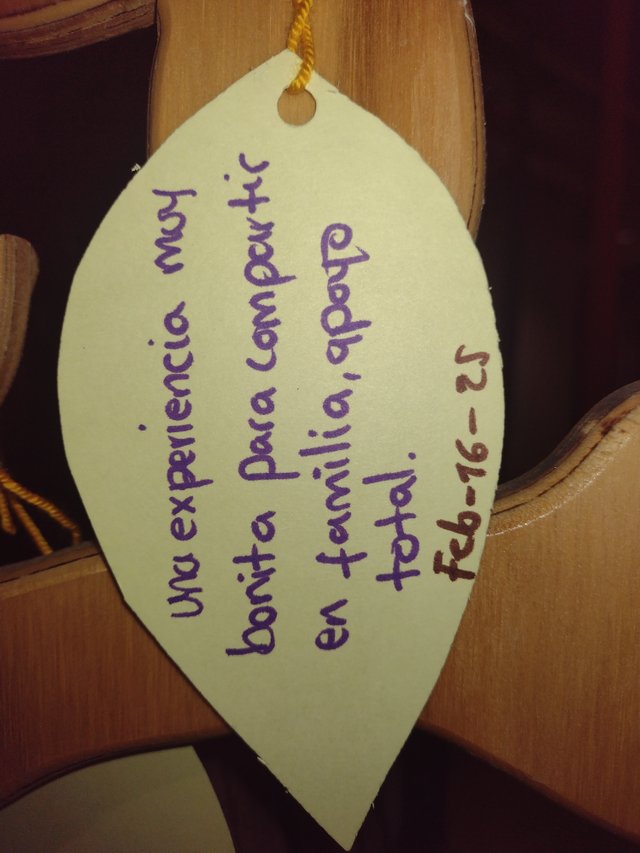 una experiencia muy
bonita para compartir
en familia, apoyo
total.
Feb-16-25